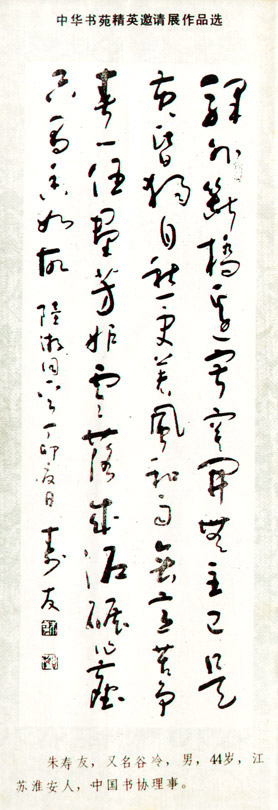 中华书苑精英邀请展作品选
驛外斷橋邊寂寞開無主已是
黄昏獨自愁更著風和雨無意苦争
春一任羣芳妒零落成泥碾作塵
只有香如故 陸游詞 丁卯夏日 壽友
朱寿友，又名谷冷，男，44岁，江
苏淮安人，中国书协理事。